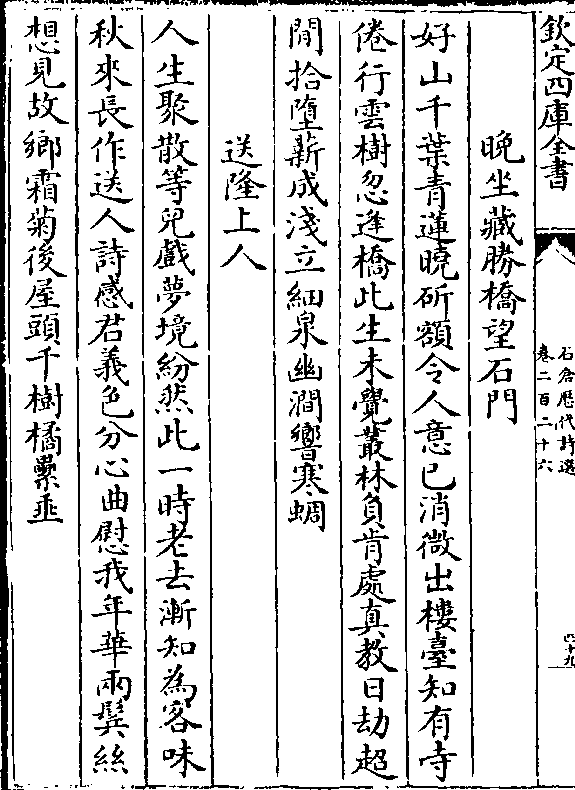 欽定四庫全書
石倉歷代詩選
卷二百二十六
四十九
晚坐藏勝橋望石門
好山千葉青蓮曉斫額令人意已消微出樓臺知有寺
倦行雲樹忽逢橋此生未覺叢林負肯處真教日劫超
閒拾墮薪成淺立細泉幽澗響寒蜩
送隆上人
人生聚散等兒戲夢境紛然此一時老去漸知為客味
秋來長作送人詩感君義色分心曲慰我年華兩鬂絲
想見故鄉霜菊後屋頭千樹橘纍垂